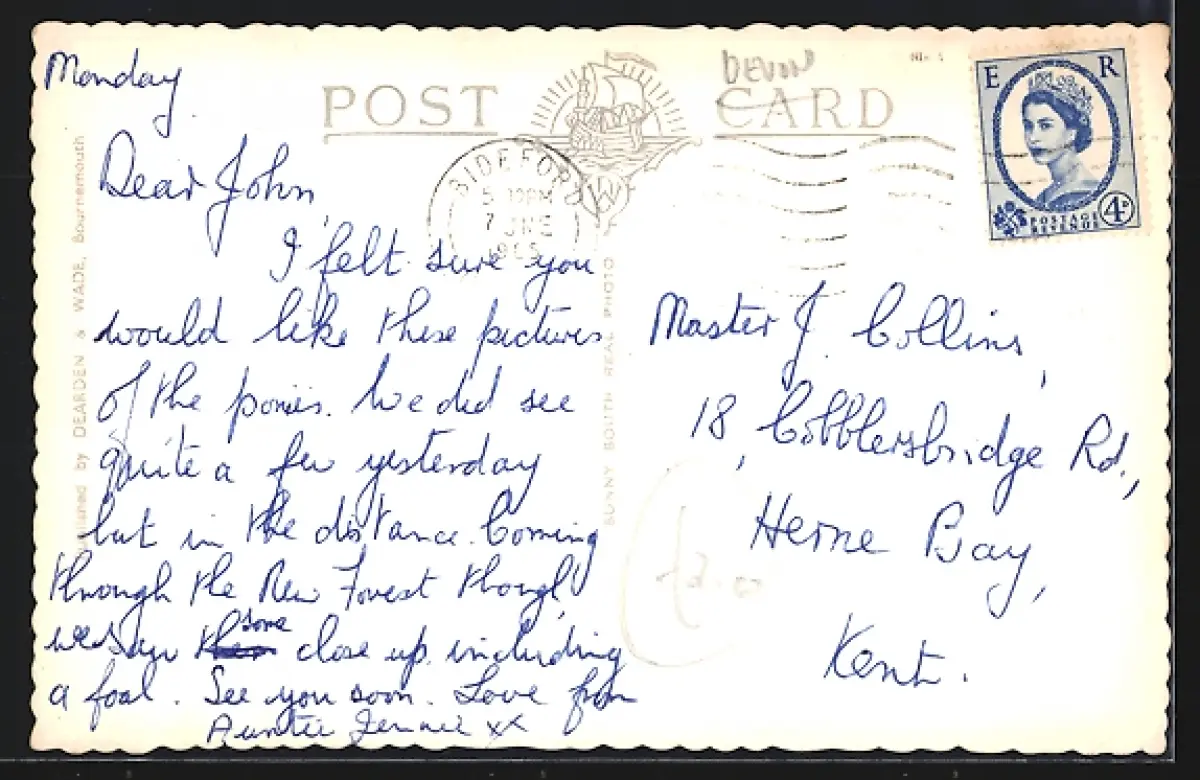 Monday
POST CARD
DEVON
E R
POSTAGE
REVENUE
4D
BIDEFORD
5 PM
7 JNE
Published by DEARDEN & WADE, Bournemouth
SUNNY SOUTH REAL PHOTO
Dear John,
I felt sure you
would like these pictures
of the ponies. We did see
quite a few yesterday
but in the distance. Coming
through the New Forest though,
we saw some close up including
a foal. See you soon. Love from
Auntie Jennie xx
Master J Collins,
18, Cobblersbridge Rd.,
Herne Bay,
Kent.